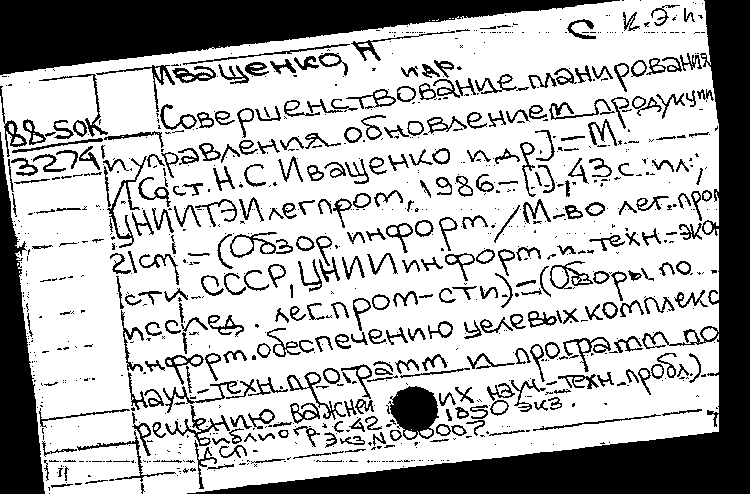 С К.Э.п.
Иващенко, Н
и др.
88-50К
3274
Совершенствование планирования
и управления обновлением продукции
/[Сост. Н.С. Иващенко и др.].- М.:
ЦНИИТЭИлегпром, 1986.- [1], 43 с.: ил.;
21 см.- (Обзор. информ. / М-во лег. пром
сти СССР, ЦНИИ информ. и техн.-экон
исслед. лег.пром-сти).-(Обзоры по
информ. обеспечению целевых комплекс
науч.-техн. программ и программ по
решению важней их науч.-техн. пробл.)
Библиогр.: с. 42 1850 экз.
Экз. N 000007.
ДСП.